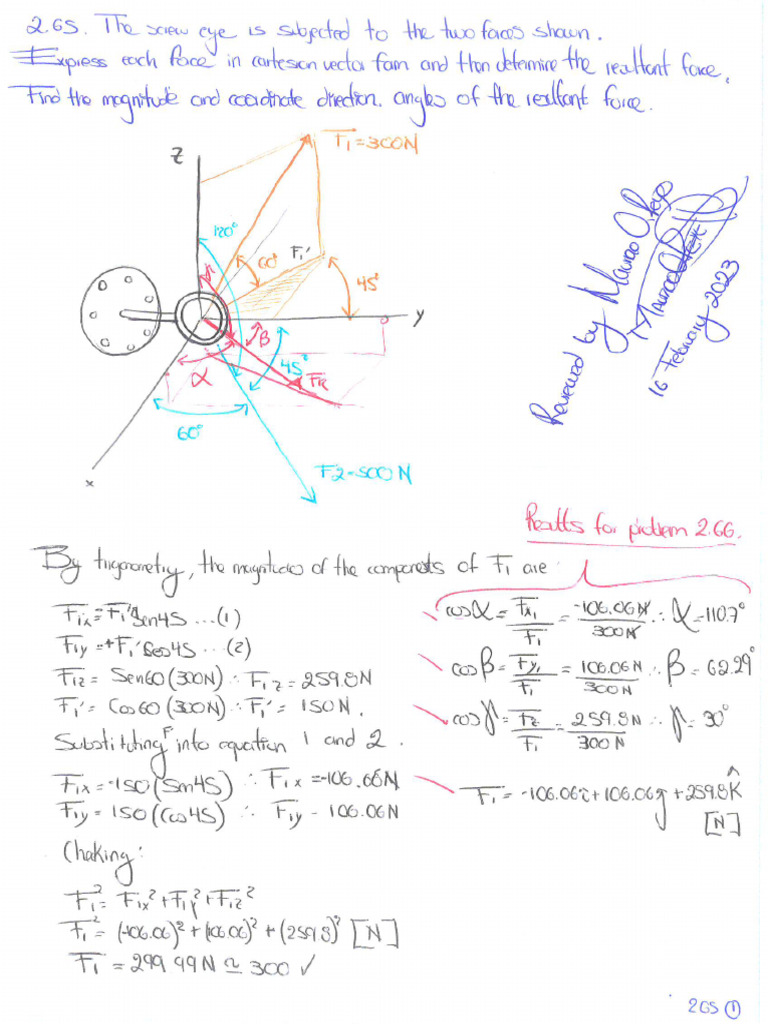 2.65. The screw eye is subjected to the two forces shown.
Express each force in cartesian vector form and then determine the resultant force.
Find the magnitude and coordinate direction angles of the resultant force.
Z
F1=300N
120°
60°
F1'
45°
y
β
45°
α
FR
60°
x
F2=500N
Reviewed by Mauricio
16 February 2023
Results for problem 2.66.
By trigonometry, the magnitudes of the components of F1 are:
F1x=-F1'Sen45 ...(1)
F1y=+F1'Cos45 ...(2)
F1z= Sen60(300N) ∴ F1z=259.8N
F1'= Cos60(300N) ∴ F1'= 150N.
Substituting F' into equation 1 and 2.
F1x=-150(Sin45) ∴ F1x=-106.66N
F1y= 150(Cos45) ∴ F1y - 106.06N
Chaking:
F1²= F1x²+F1y²+F1z²
F1²= (-106.06)²+(106.06)²+(259.8)² [N]
F1 = 299.99N ≃ 300 ✓
cosα = Fx1/F1 = -106.06N/300N ∴ α=110.7°
cosβ = Fy1/F1 = 106.06N/300N ∴ β= 62.29°
cosγ = Fz/F1 = 259.8N/300N ∴ γ=30°
F1=-106.06i+106.06j+259.8K
[N]
265 ①